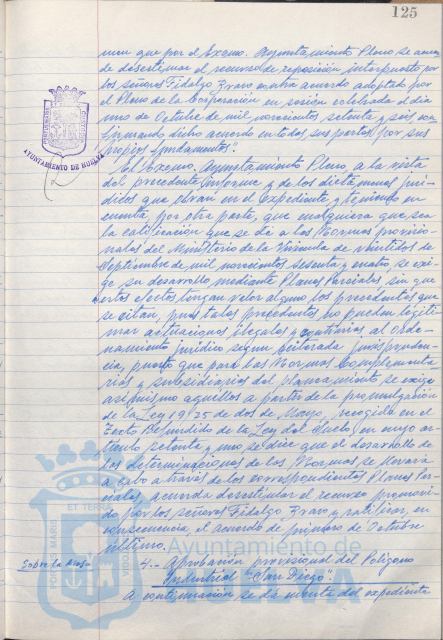 125
men que por el Excmo. Ayuntamiento Pleno se acuer-
de desestimar el recurso de reposición interpuesto por
los señores Fidalgo Bravo contra acuerdo adoptado por
el Pleno de la Corporación en sesión celebrada el día
uno de Octubre de mil novecientos setenta y seis con-
firmando dicho acuerdo en todas sus partes por sus
propios fundamentos".
El Excmo. Ayuntamiento Pleno a la vista
del precedente informe y de los dictámenes jurí-
dicos que obran en el expediente y teniendo en
cuenta, por otra parte, que cualquiera que sea
la calificación que se dé a las Normas provisio-
nales del Ministerio de la Vivienda de veintidós de
Septiembre de mil novecientos sesenta y cuatro se exi-
ge su desarrollo mediante Planes Parciales sin que
estos efectos tengan valor alguno los precedentes que
se citan, pues tales precedentes no pueden legiti-
mar actuaciones ilegales y contrarias al Orde-
namiento jurídico según reiterada jurispruden-
cia, puesto que para las Normas Complementa-
rias y subsidiarias del planeamiento se exige
asimismo aquellos a partir de la promulgación
de la Ley 19/75 de dos de Mayo, recogida en el
Texto Refundido de la Ley del Suelo, en cuyo ar-
tículo setenta y uno se dice que el desarrollo de
las determinaciones de las Normas se llevará
a cabo a través de los correspondientes Planes Par-
ciales, acuerda desestimar el recurso promovi-
do por los señores Fidalgo Bravo y ratificar, en
consecuencia, el acuerdo de primero de Octubre
último.
Sobre la Mesa
4.- Aprobación provisional del Polígono
Industrial "San Diego".
A continuación se da cuenta del expediente
AYUNTAMIENTO DE HUELVA
PORTUS MARIS ET TERRAE
Ayuntamiento de
HUELVA